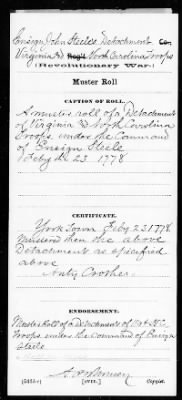 Ensign John Steele's Detachment Co.
Virginia & Reg't North Carolina Troops
(Revolutionary War.)
Muster Roll
CAPTION OF ROLL.
A muster roll of a Detachment
of Virginia & North Carolina
Troops under the Command
of Ensign Steele
Feby the 23 1778
CERTIFICATE.
York Town Feby 23 1778
Mustered then the above
Detachment as specified
above
Anty Crother
ENDORSEMENT.
Muster Roll of a Detachments of Va & N C
Troops under the Command of Ensign
Steele
[OVER.] Copyist.